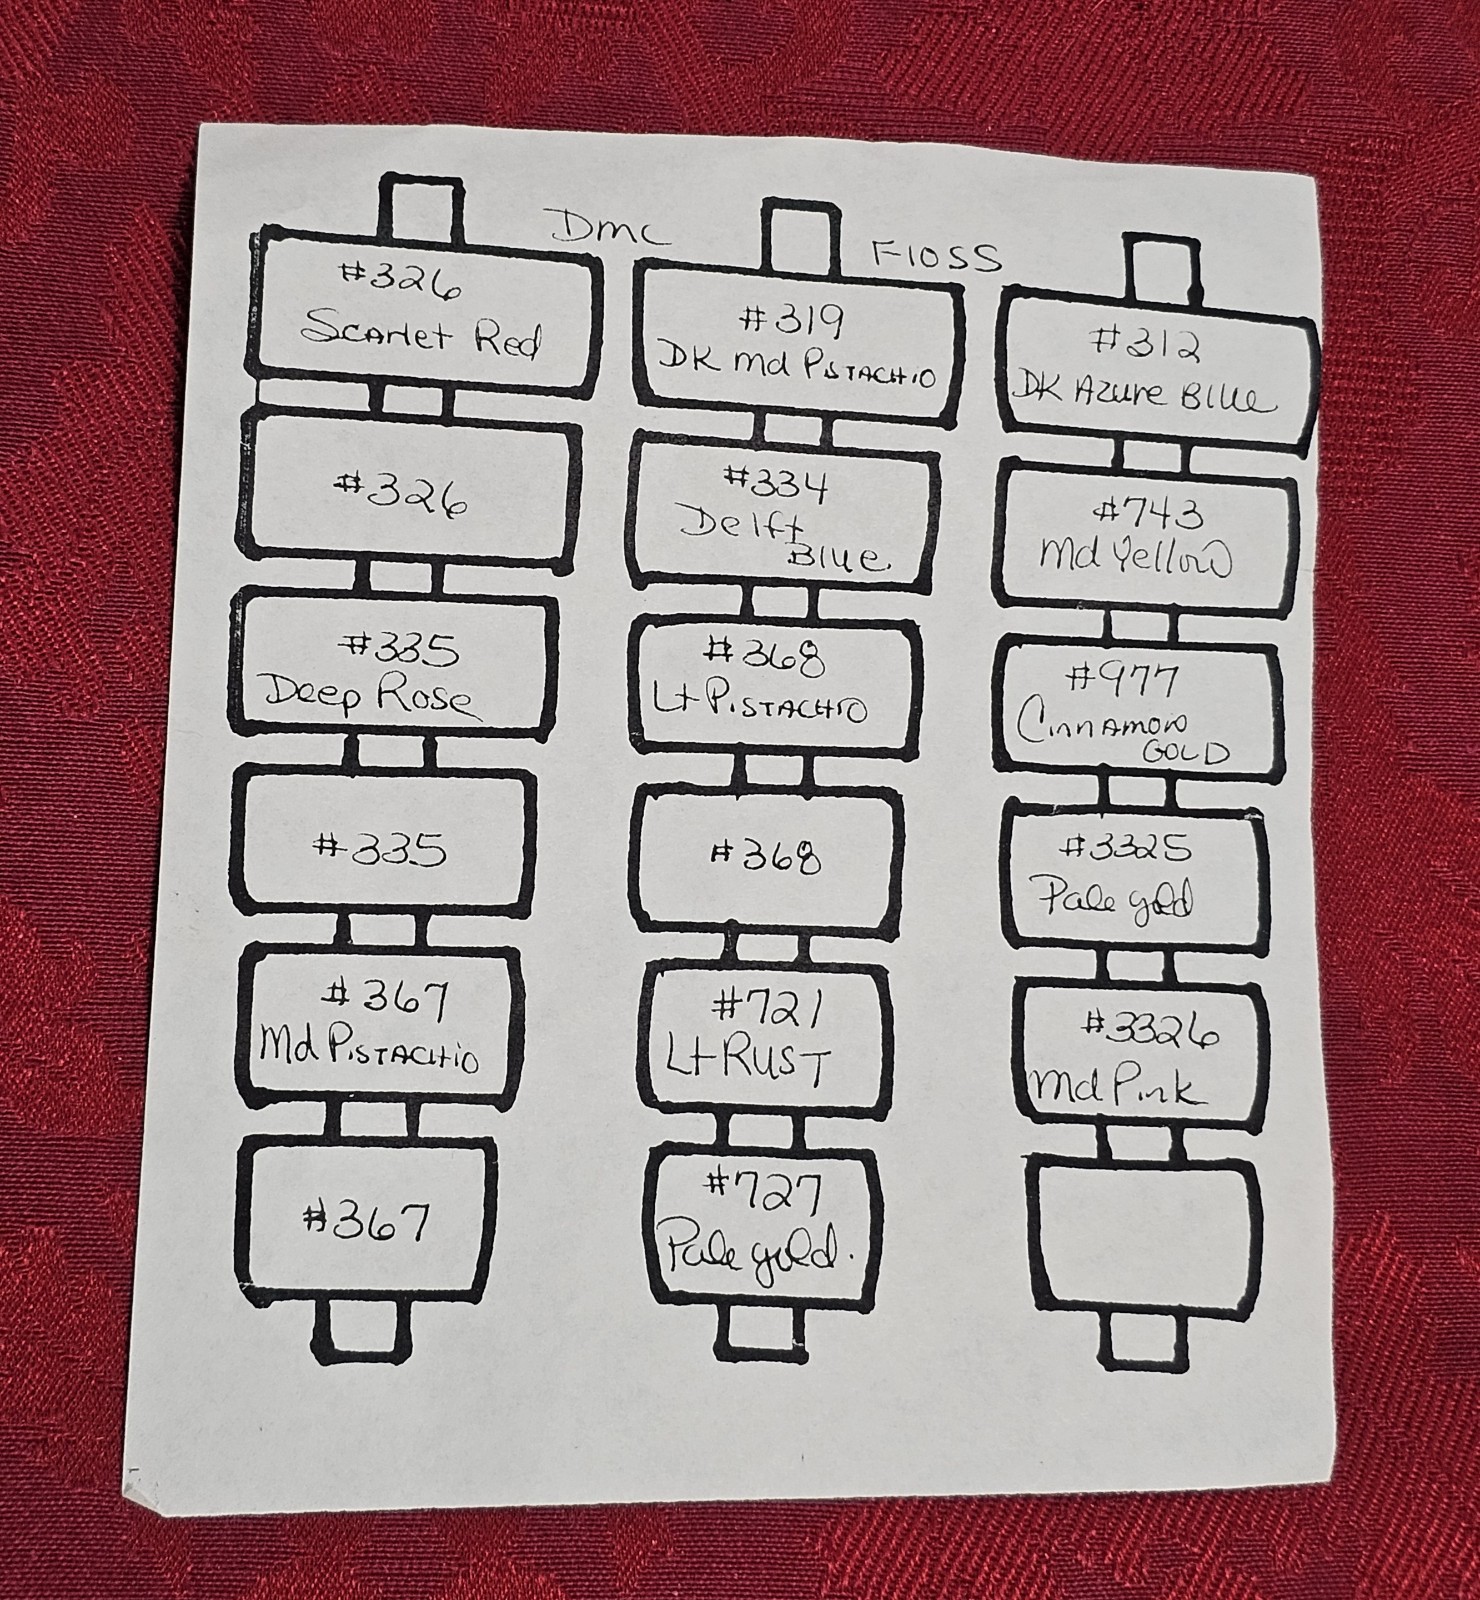 Dmc Floss
#326
Scarlet Red
#326
#335
Deep Rose
#335
#367
Md Pistachio
#367
#319
DK md Pistachio
#334
Delft
Blue
#368
Lt Pistachio
#368
#721
Lt Rust
#727
Pale gold.
#312
DK Azure Blue
#743
md Yellow
#977
Cinnamon
Gold
#3325
Pale gold
#3326
md Pink